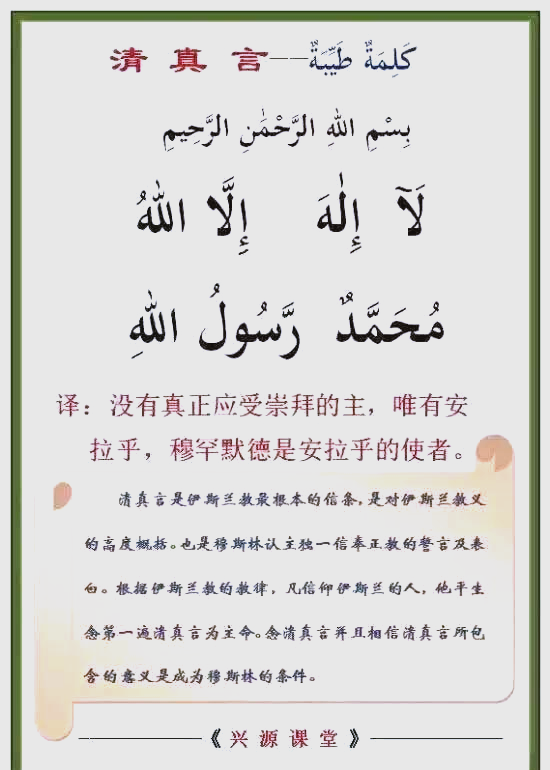 清真言——كَلِمَةٌ طَيِّبَةٌ
بِسْمِ اللهِ الرَّحْمٰنِ الرَّحِيمِ
لَآ إِلٰهَ إِلَّا اللهُ
مُحَمَّدٌ رَّسُولُ اللهِ
译：没有真正应受崇拜的主，唯有安
拉乎，穆罕默德是安拉乎的使者。
清真言是伊斯兰教最根本的信条，是对伊斯兰教义
的高度概括。也是穆斯林认主独一信奉正教的誓言及表
白。根据伊斯兰教的教律，凡信仰伊斯兰的人，他平生
念第一遍清真言为主命。念清真言并且相信清真言所包
含的意义是成为穆斯林的条件。
《兴源课堂》